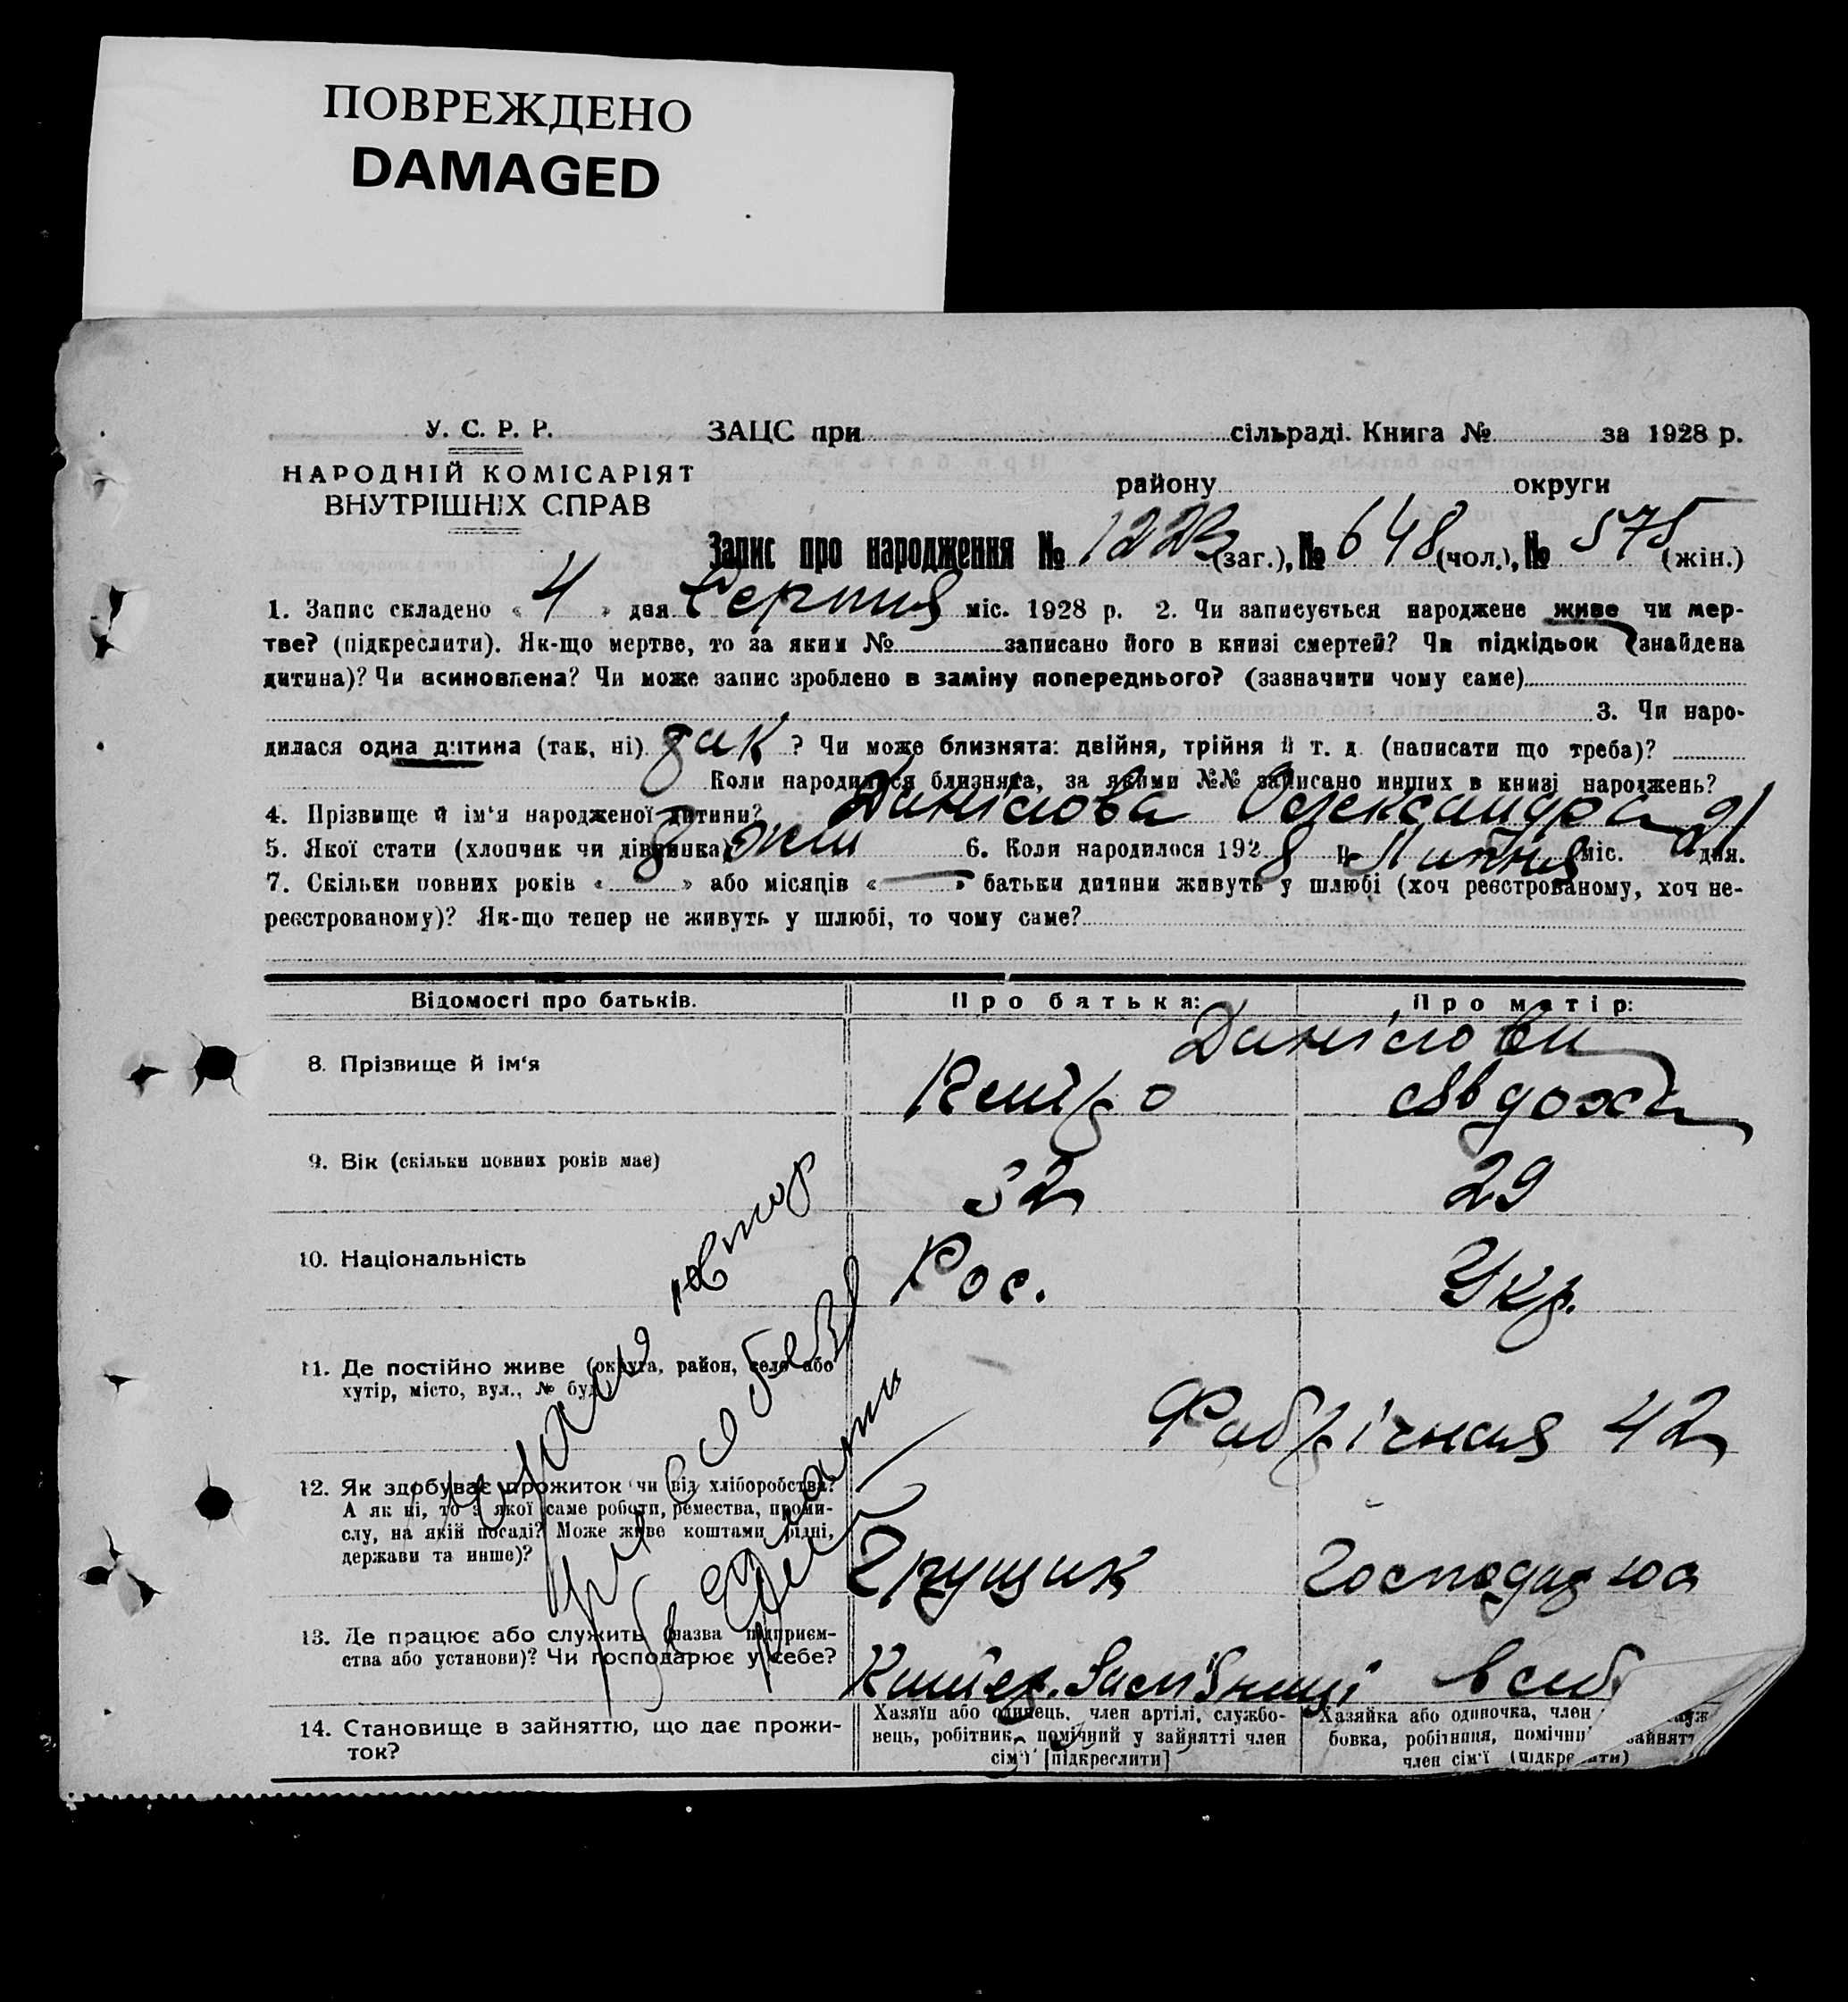 ПОВРЕЖДЕНО
DAMAGED
У. С. Р. Р.
НАРОДНІЙ КОМІСАРІЯТ
ВНУТРІШНІХ СПРАВ
ЗАЦС при сільраді. Книга № за 1928 р.
району округи
Запис про народження № 1223 (заг.), № 648 (чол.), № 575 (жін.)
1. Запис складено « 4 » дня Серпня міс. 1928 р. 2. Чи записується народжене живе чи мер-
тве? (підкреслити). Як-що мертве, то за яким № записано його в книзі смертей? Чи підкідьок (знайдена
дитина)? Чи всиновлена? Чи може запис зроблено в заміну попереднього? (зазначити чому саме)
3. Чи наро-
дилася одна дитина (так, ні) так ? Чи може близнята: двійня, трійня й т. д. (написати що треба)?
Коли народилися близнята, за якими №№ записано инших в книзі народжень?
4. Прізвище й ім'я народженої дитини? Данілова Олександра
5. Якої стати (хлопчик чи дівчинка) жін 6. Коли народилося 1928 р. Липня міс. 21 дня.
7. Скільки повних років « » або місяців « — » батьки дитини живуть у шлюбі (хоч реєстрованому, хоч не-
реєстрованому)? Як-що тепер не живуть у шлюбі, то чому саме?
Відомості про батьків. Про батька: Про матір:
Данілови
8. Прізвище й ім'я Петро Явдоха
9. Вік (скільки повних років має) 32 29
10. Національність Рос. Укр.
11. Де постійно живе (округа, район, село або
хутір, місто, вул., № буд.)
Фабрічная 42
12. Як здобуває прожиток чи від хліборобства?
А як ні, то з якої саме роботи, ремества, проми-
слу, на якій посаді? Може живе коштами рідні,
держави та инше)?
Грущик Господарюа
13. Де працює або служить (назва підприєм-
ства або установи)? Чи господарює у себе?
в себ
14. Становище в зайняттю, що дає прожи-
ток?
Хазяїн або одинець, член артілі, службо-
вець, робітник, помічний у зайнятті член
сім'ї [підкреслити]
Хазяйка або одиночка, член
бовка, робітниця, помічни зайнятт
член сім'ї (підкреслити)